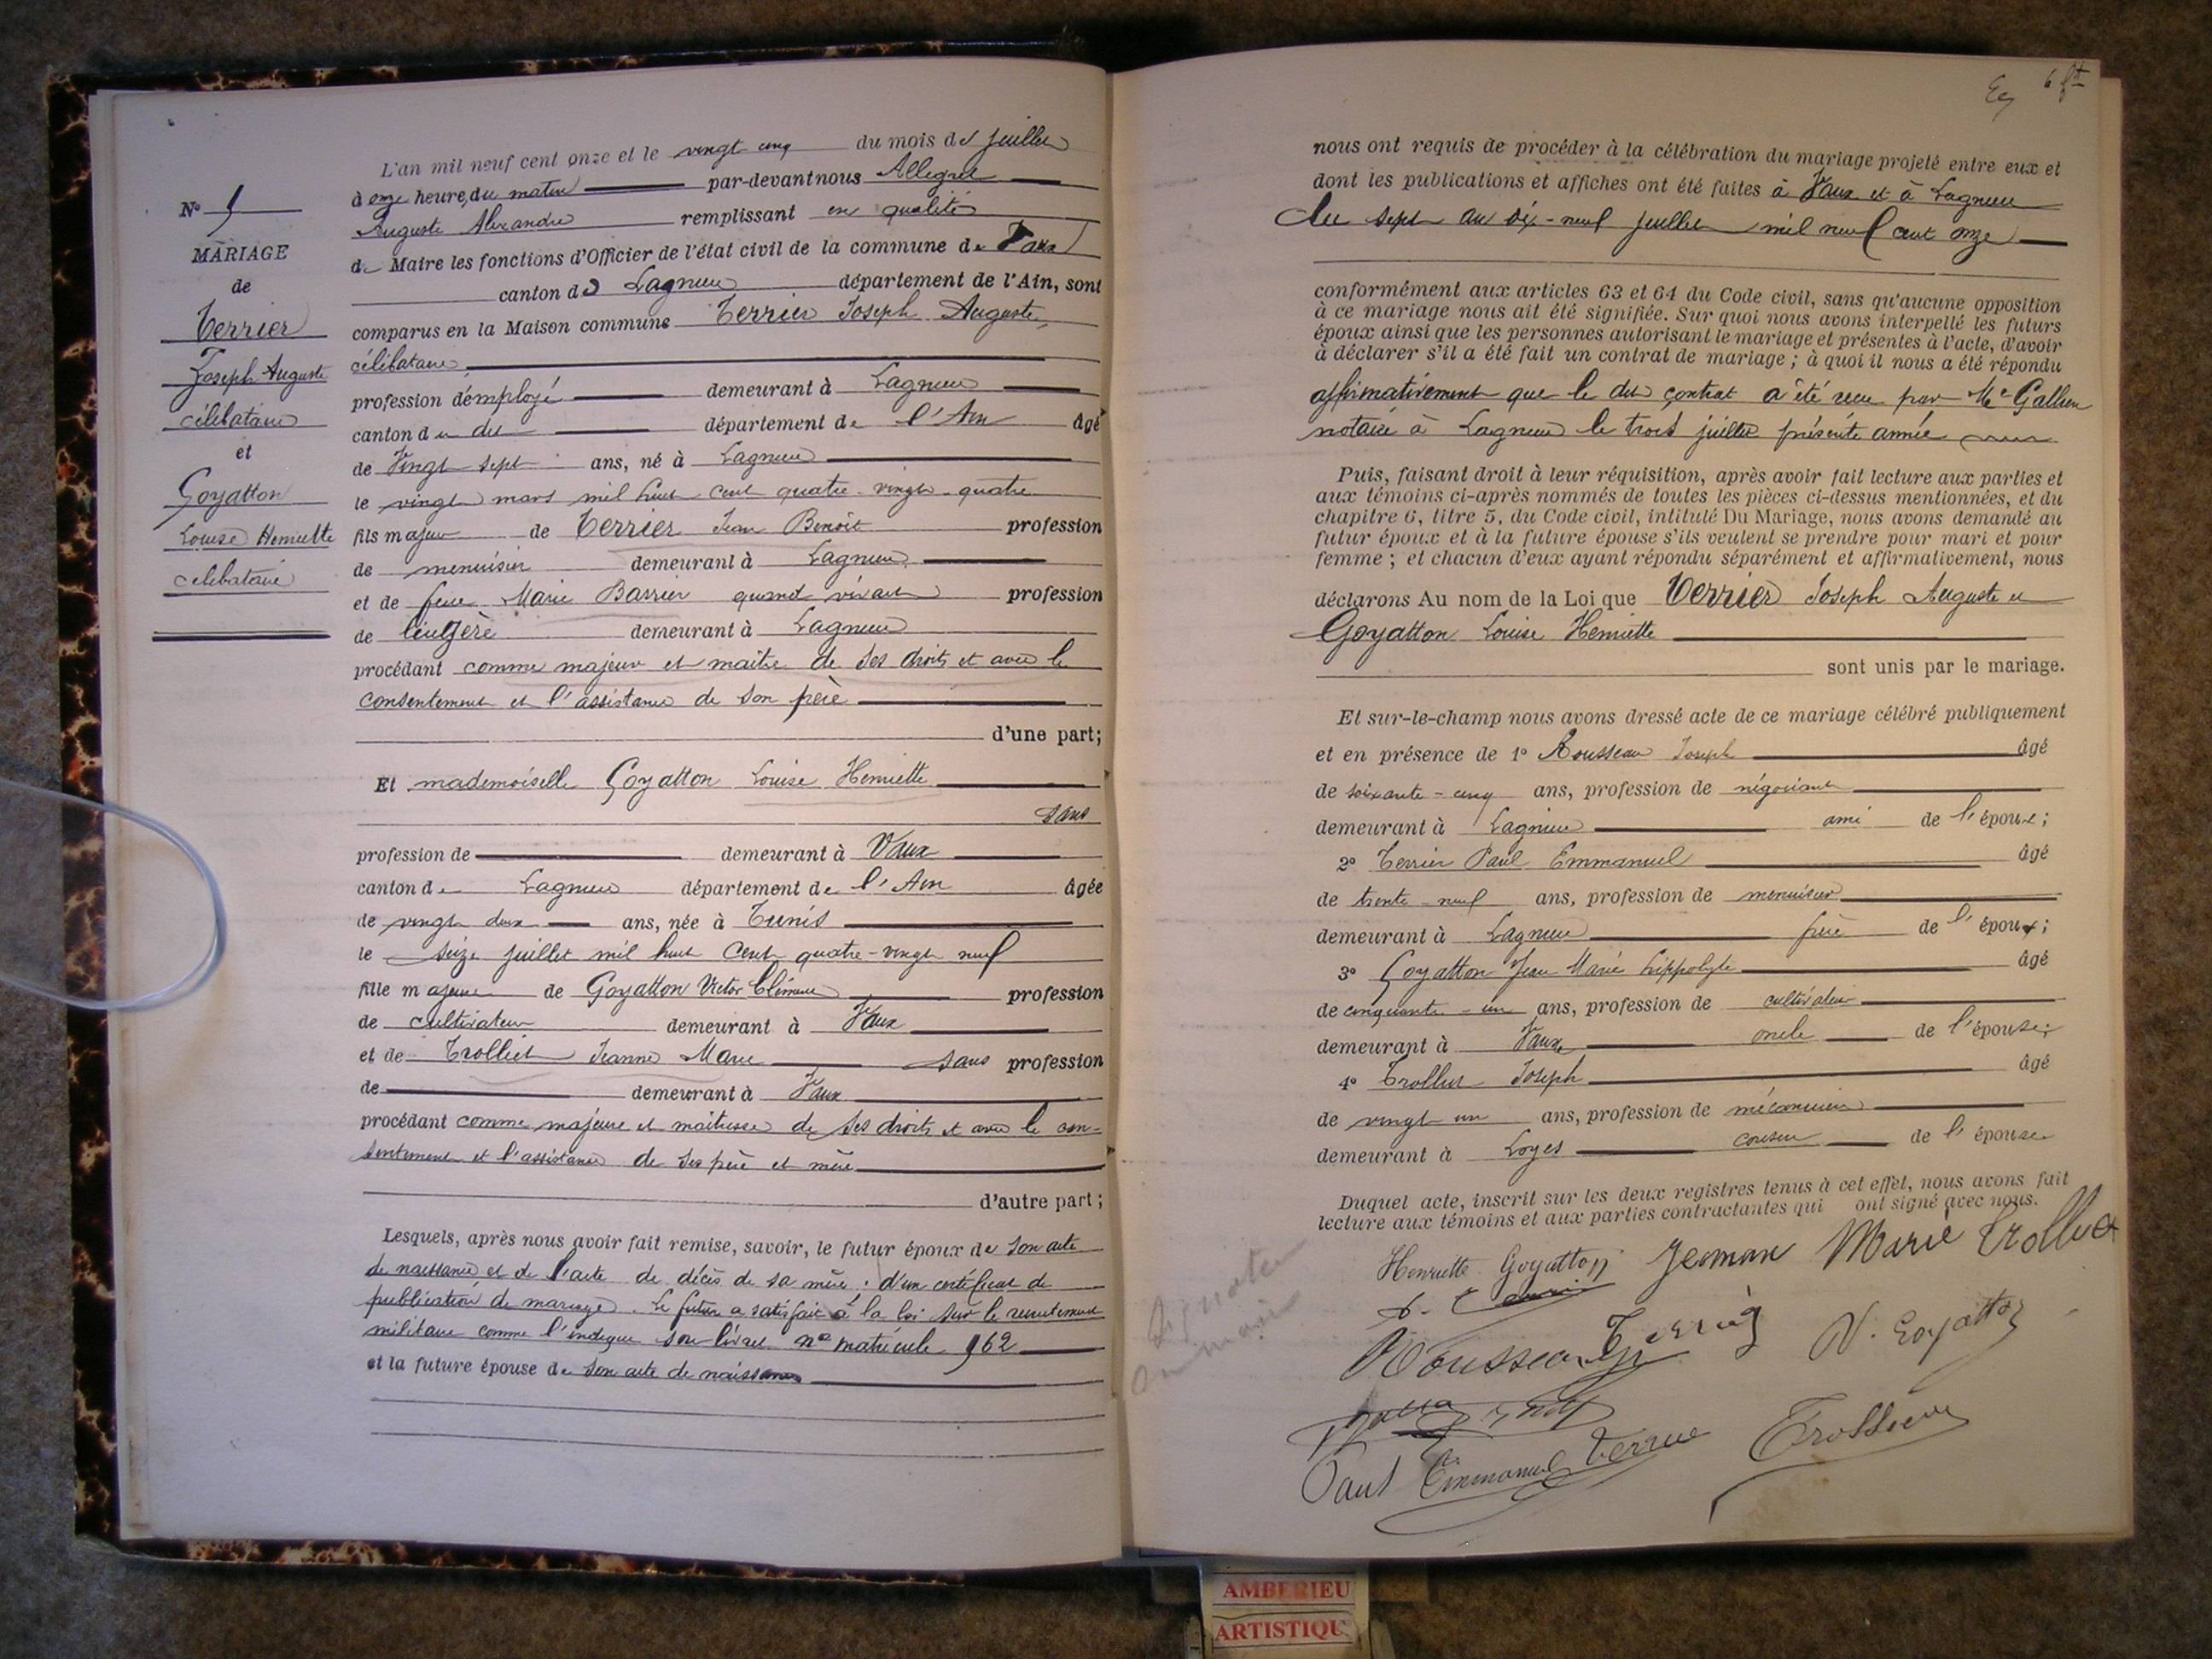 L'an mil neuf cent onze et le vingt cinq du mois de juillet
à onze heure, du matin par-devant nous Allegret
Auguste Alexandre remplissant en qualité
de Maire les fonctions d'Officier de l'état civil de la commune de Vaux
canton de Lagnieu département de l'Ain, sont
comparus en la Maison commune Terrier Joseph Auguste,
célibataire
profession d'employé demeurant à Lagnieu
canton du dit département de l'Ain âgé
de Vingt sept ans, né à Lagnieu
le vingt mars mil huit cent quatre-vingt-quatre
fils majeur de Terrier Jean Benoit profession
de menuisier demeurant à Lagnieu
et de feue Marie Barrier quand vivait profession
de demeurant à Lagnieu
procédant comme majeur et maître de ses droits et avec le
consentement et l'assistance de son père
d'une part;
Et mademoiselle Goyatton Louise Henriette
sans
profession de demeurant à Vaux
canton de Lagnieu département de l'Ain âgée
de vingt deux ans, née à Tunis
le seize juillet mil huit cent quatre-vingt neuf
fille majeure de Goyatton Victor Clément profession
de cultivateur demeurant à Vaux
et de Trolliet Jeanne Marie sans profession
de demeurant à Vaux
procédant comme majeure et maîtresse de ses droits et avec le con-
sentement et l'assistance de ses père et mère
d'autre part;
Lesquels, après nous avoir fait remise, savoir, le futur époux de son acte
de naissance et de l'acte de décès de sa mère : d'un certificat de
publication de mariage. Le futur a satisfait à la loi sur le recrutement
militaire comme l'indique son livret n° matricule 962
et la future épouse de son acte de naissance
N° 9
MARIAGE
de
Terrier
Joseph Auguste
célibataire
et
Goyatton
Louise Henriette
célibataire
6 ft
nous ont requis de procéder à la célébration du mariage projeté entre eux et
dont les publications et affiches ont été faites à Vaux et à Lagnieu
du sept au dix-neuf juillet mil neuf cent onze
conformément aux articles 63 et 64 du Code civil, sans qu'aucune opposition
à ce mariage nous ait été signifiée. Sur quoi nous avons interpellé les futurs
époux ainsi que les personnes autorisant le mariage et présentes à l'acte, d'avoir
à déclarer s'il a été fait un contrat de mariage ; à quoi il nous a été répondu
affirmativement que le dit contrat a été reçu par Me Gallien
notaire à Lagnieu le trois juillet présente année
Puis, faisant droit à leur réquisition, après avoir fait lecture aux parties et
aux témoins ci-après nommés de toutes les pièces ci-dessus mentionnées, et du
chapitre 6, titre 5, du Code civil, intitulé Du Mariage, nous avons demandé au
futur époux et à la future épouse s'ils veulent se prendre pour mari et pour
femme ; et chacun d'eux ayant répondu séparément et affirmativement, nous
déclarons Au nom de la Loi que Terrier Joseph Auguste et
Goyatton Louise Henriette
sont unis par le mariage.
Et sur-le-champ nous avons dressé acte de ce mariage célébré publiquement
et en présence de 1° Rousseau Joseph âgé
de soixante-cinq ans, profession de négociant
demeurant à Lagnieu ami de l'époux;
2° Terrier Paul Emmanuel âgé
de trente-neuf ans, profession de menuisier
demeurant à Lagnieu frère de l'époux;
3° Goyatton Jean Marie hippolyte âgé
de cinquante-un ans, profession de cultivateur
demeurant à Vaux oncle de l'épouse;
4° Trolliet Joseph âgé
de vingt un ans, profession de mécanicien
demeurant à Loyes cousin de l'épouse
Duquel acte, inscrit sur les deux registres tenus à cet effet, nous avons fait
lecture aux témoins et aux parties contractantes qui ont signé avec nous.
Henriette Goyatton Jeanne Marie Trolliet
Rousseau Terrier V. Goyatton
Paul Emmanuel Terrier Trolliet
AMBERIEU
ARTISTIQU